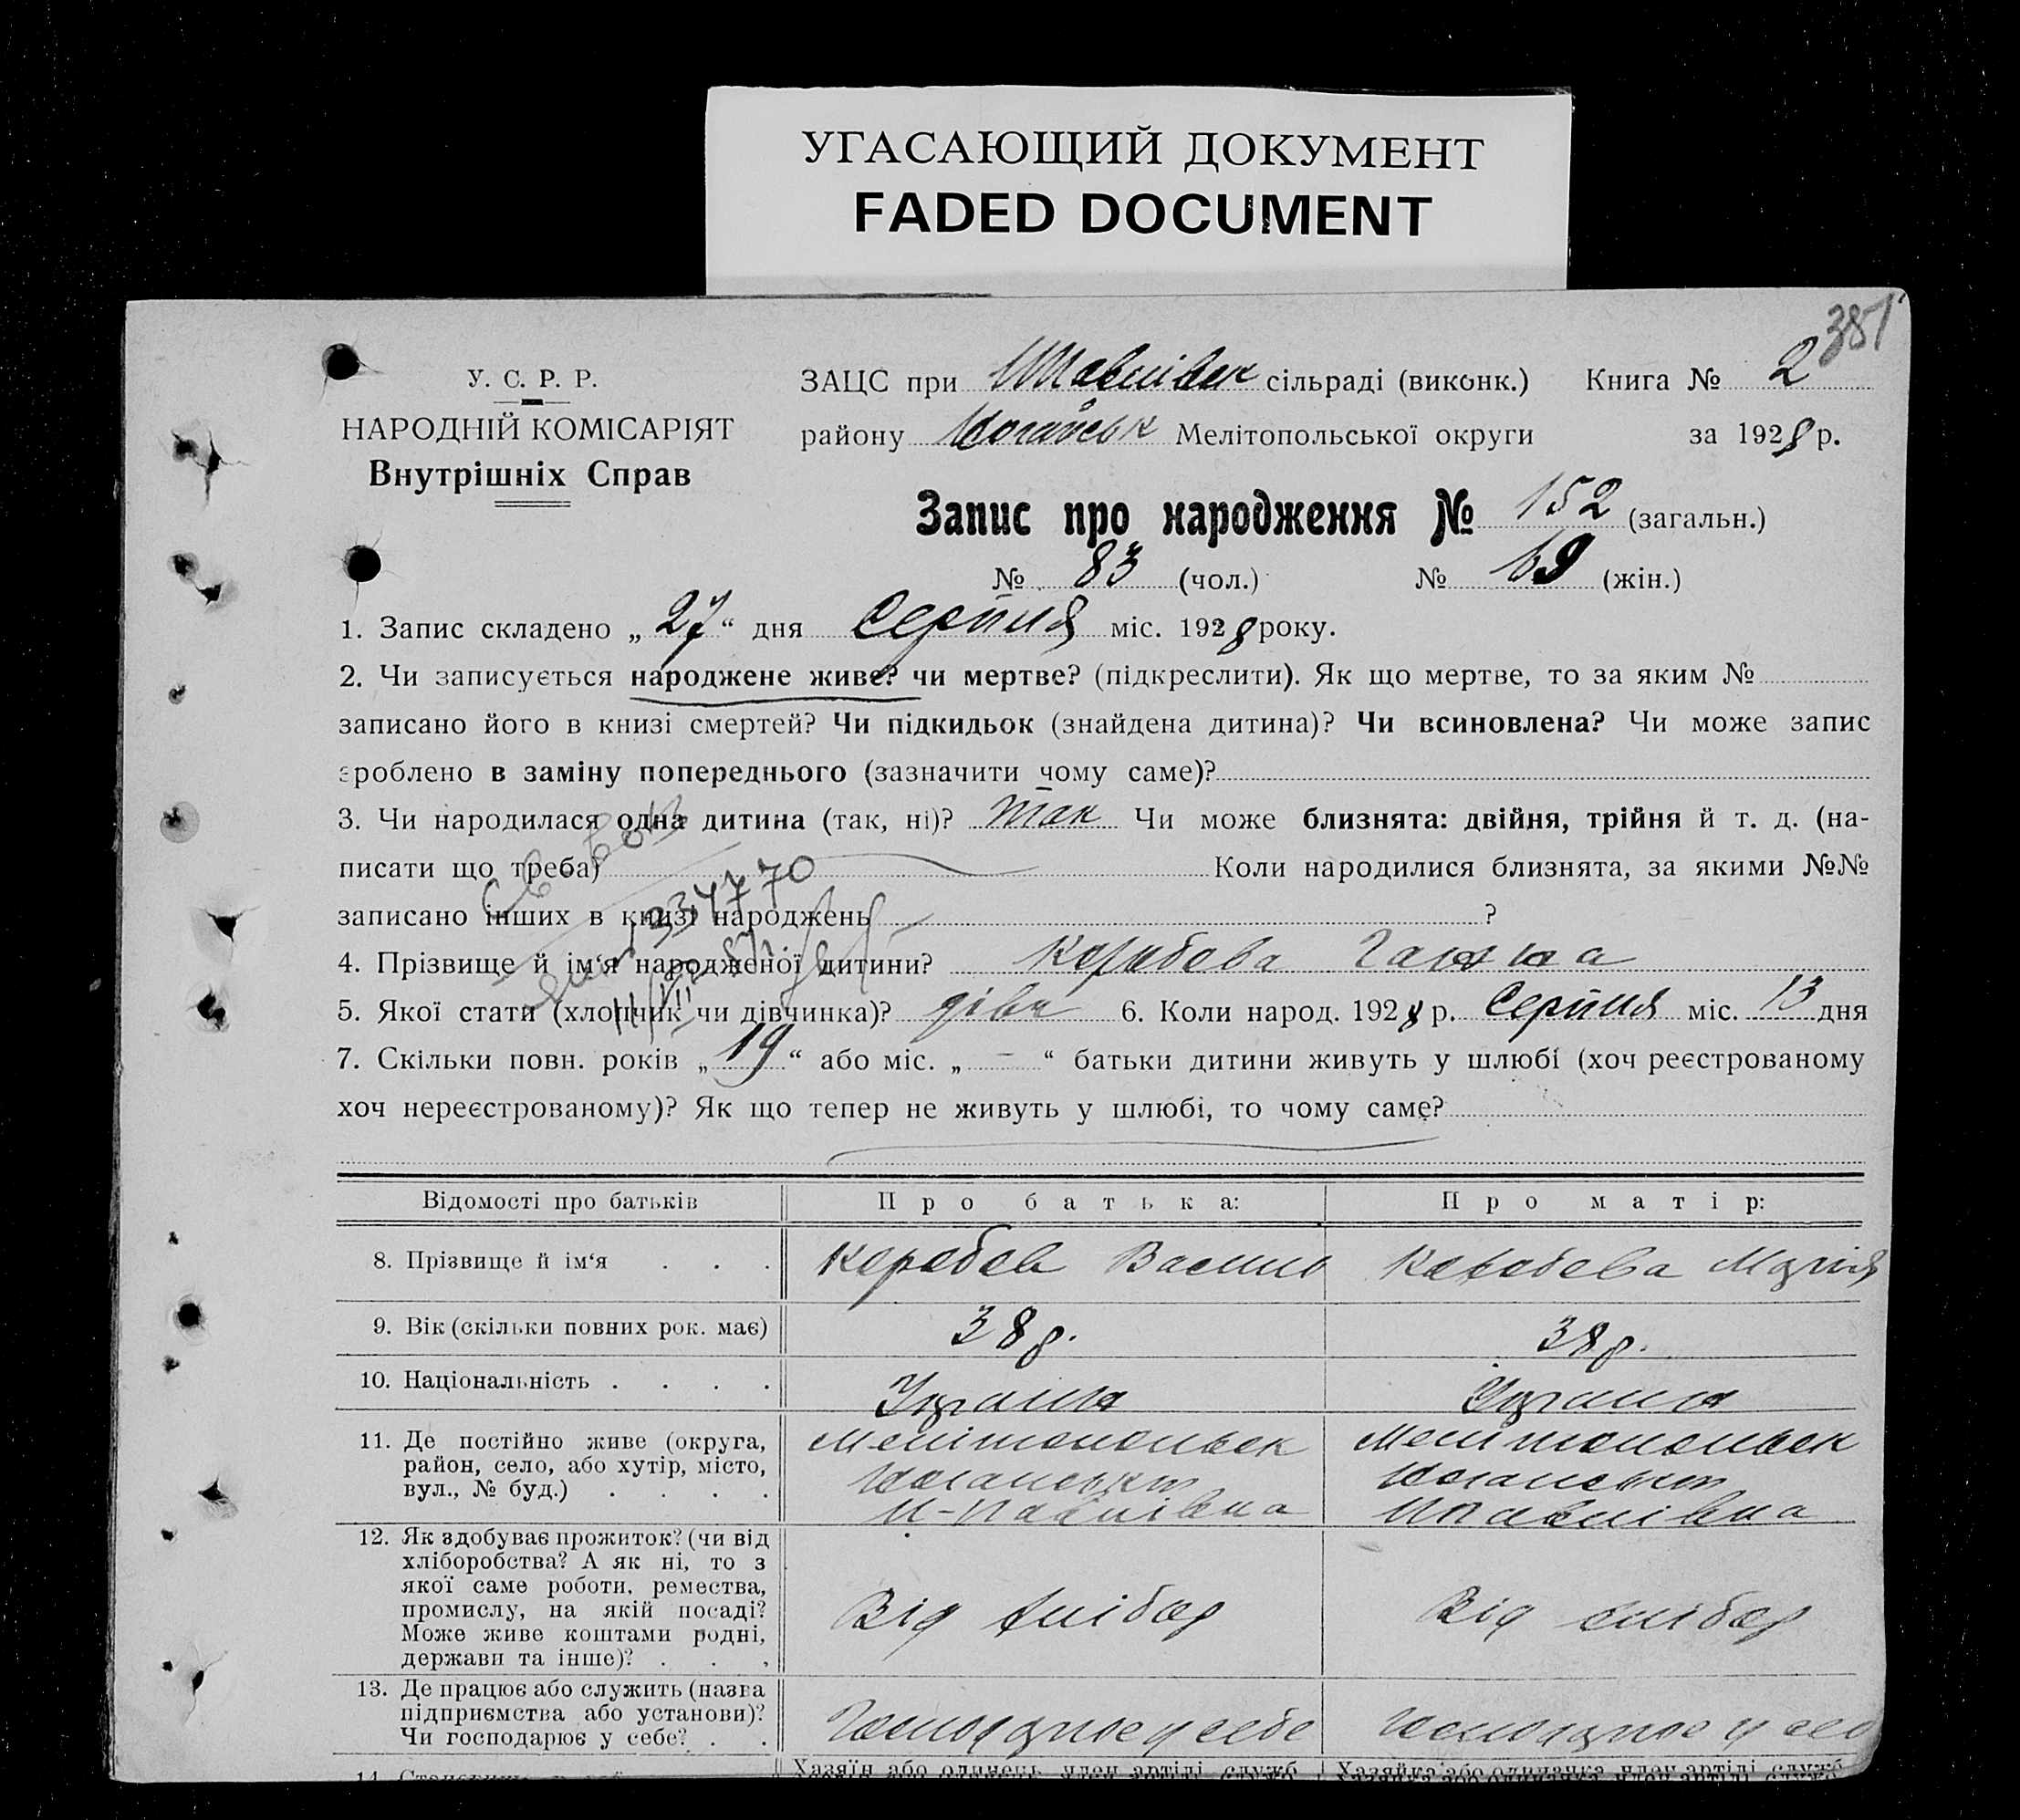 УГАСАЮЩИЙ ДОКУМЕНТ
FADED DOCUMENT
381
У. С. Р. Р.
НАРОДНІЙ КОМІСАРІЯТ
Внутрішніх Справ
ЗАЦС при сільраді (виконк.) Книга № 2
району Ногайськ Мелітопольської округи за 1928 р.
Запис про народження № 152 (загальн.)
№ 83 (чол.) № 69 (жін.)
1. Запис складено „27“ дня Серпня міс. 1928 року.
2. Чи записується народжене живе? чи мертве? (підкреслити). Як що мертве, то за яким №
записано його в книзі смертей? Чи підкидьок (знайдена дитина)? Чи всиновлена? Чи може запис
зроблено в заміну попереднього (зазначити чому саме)?
3. Чи народилася одна дитина (так, ні)? Так Чи може близнята: двійня, трійня й т. д. (на-
писати що треба) Коли народилися близнята, за якими №№
записано інших в книзі народжень ?
334770
4. Прізвище й ім‘я народженої дитини? Коробова Ганна
5. Якої стати (хлопчик чи дівчинка)? дівч 6. Коли народ. 1928 р. Серпня міс. 13 дня
7. Скільки повн. років „19“ або міс. „-“ батьки дитини живуть у шлюбі (хоч реєстрованому
хоч нереєстрованому)? Як що тепер не живуть у шлюбі, то чому саме?
Відомості про батьків Про батька: Про матір:
8. Прізвище й ім‘я . . . Коробов Василь Коробова Марія
9. Вік (скільки повних рок. має) 38 р. 38 р.
10. Національність . . . . Україн Україн
11. Де постійно живе (округа, Мелітопольск Мелітопольск
район, село, або хутір, місто, Ногайськ Ногайськ
вул., № буд.) . . . . Н-Павлівка Н Павлівка
12. Як здобуває прожиток? (чи від
хліборобства? А як ні, то з
якої саме роботи, ремества,
промислу, на якій посаді? Від хлібор Від хлібор
Може живе коштами родні,
держави та інше)? . . .
13. Де працює або служить (назва
підприємства або установи)?
Чи господарює у себе? . . Господарює у себе Господарює у себе
Хазяїн або одинець, член артілі, служб. Хазяйка або одиначка, член артілі, служб.